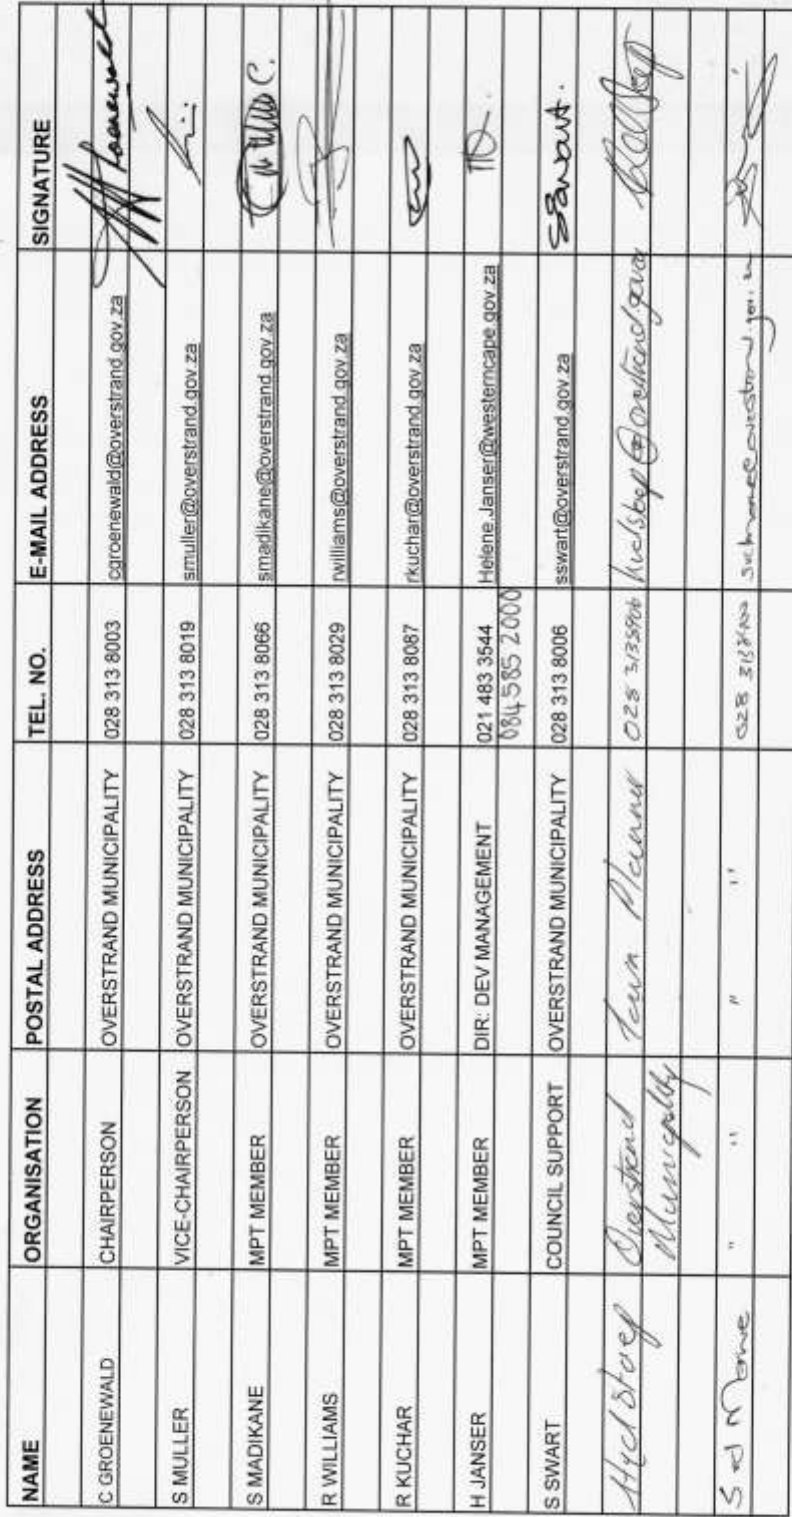 NAME ORGANISATION POSTAL ADDRESS TEL. NO. E-MAIL ADDRESS SIGNATURE
C GROENEWALD CHAIRPERSON OVERSTRAND MUNICIPALITY 028 313 8003 cgroenewald@overstrand.gov.za
S MULLER VICE-CHAIRPERSON OVERSTRAND MUNICIPALITY 028 313 8019 smuller@overstrand.gov.za
S MADIKANE MPT MEMBER OVERSTRAND MUNICIPALITY 028 313 8066 smadikane@overstrand.gov.za
R WILLIAMS MPT MEMBER OVERSTRAND MUNICIPALITY 028 313 8029 rwilliams@overstrand.gov.za
R KUCHAR MPT MEMBER OVERSTRAND MUNICIPALITY 028 313 8087 rkuchar@overstrand.gov.za
H JANSER MPT MEMBER DIR: DEV MANAGEMENT 021 483 3544 Helene.Janser@westerncape.gov.za
084 585 2000
S SWART COUNCIL SUPPORT OVERSTRAND MUNICIPALITY 028 313 8006 sswart@overstrand.gov.za SSwart.
Overstrand Town Planner 028
Municipality
" " " " 028